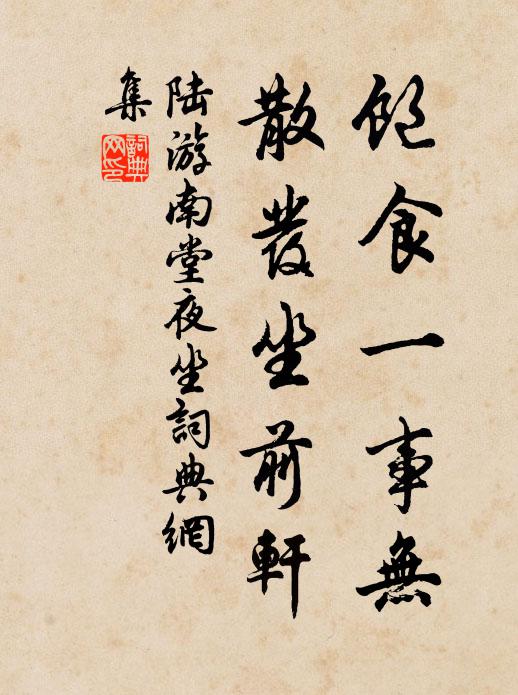 飽食一事無
散發坐前軒
陆游南堂夜坐詞典網
集
詞典
网印